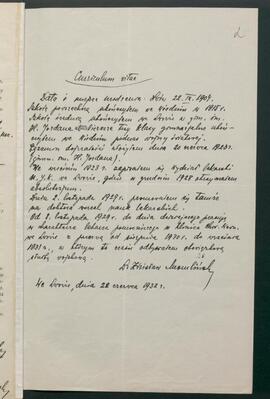 2
Curriculum vitae
Data i miejsce urodzenia: Lwów 22. IX. 1904.
Szkołę powszechną ukończyłem we Wiedniu w 1915 r.
Szkołę średnią ukończyłem we Lwowie w gimn. im.
H. Jordana. Pierwsze trzy klasy gimnazjalne ukoń-
czyłem we Wiedniu podczas wojny światowej.
Egzamin dojrzałości złożyłem dnia 20 czerwca 1923 r.
(gimn. im. H. Jordana).
We wrześniu 1923 r. zapisałem się wydział lekarski
U. J. K. we Lwowie, gdzie w grudniu 1928 otrzymałem
absolutorjum.
Dnia 2. listopada 1929 r. promowałem się tamże
na doktora wszech nauk lekarskich.
Od 2. listopada 1929 r. do dnia dzisiejszego pracuję
w charakterze lekarza pomocniczego w klinice
we Lwowie z przerwą od sierpnia 1930 r. do września
1931 r., w którym to czasie odbywałem obowiązkową
służbę wojskową.
Dr Zdzisław
We Lwowie, dnia 28 czerwca 1932 r.